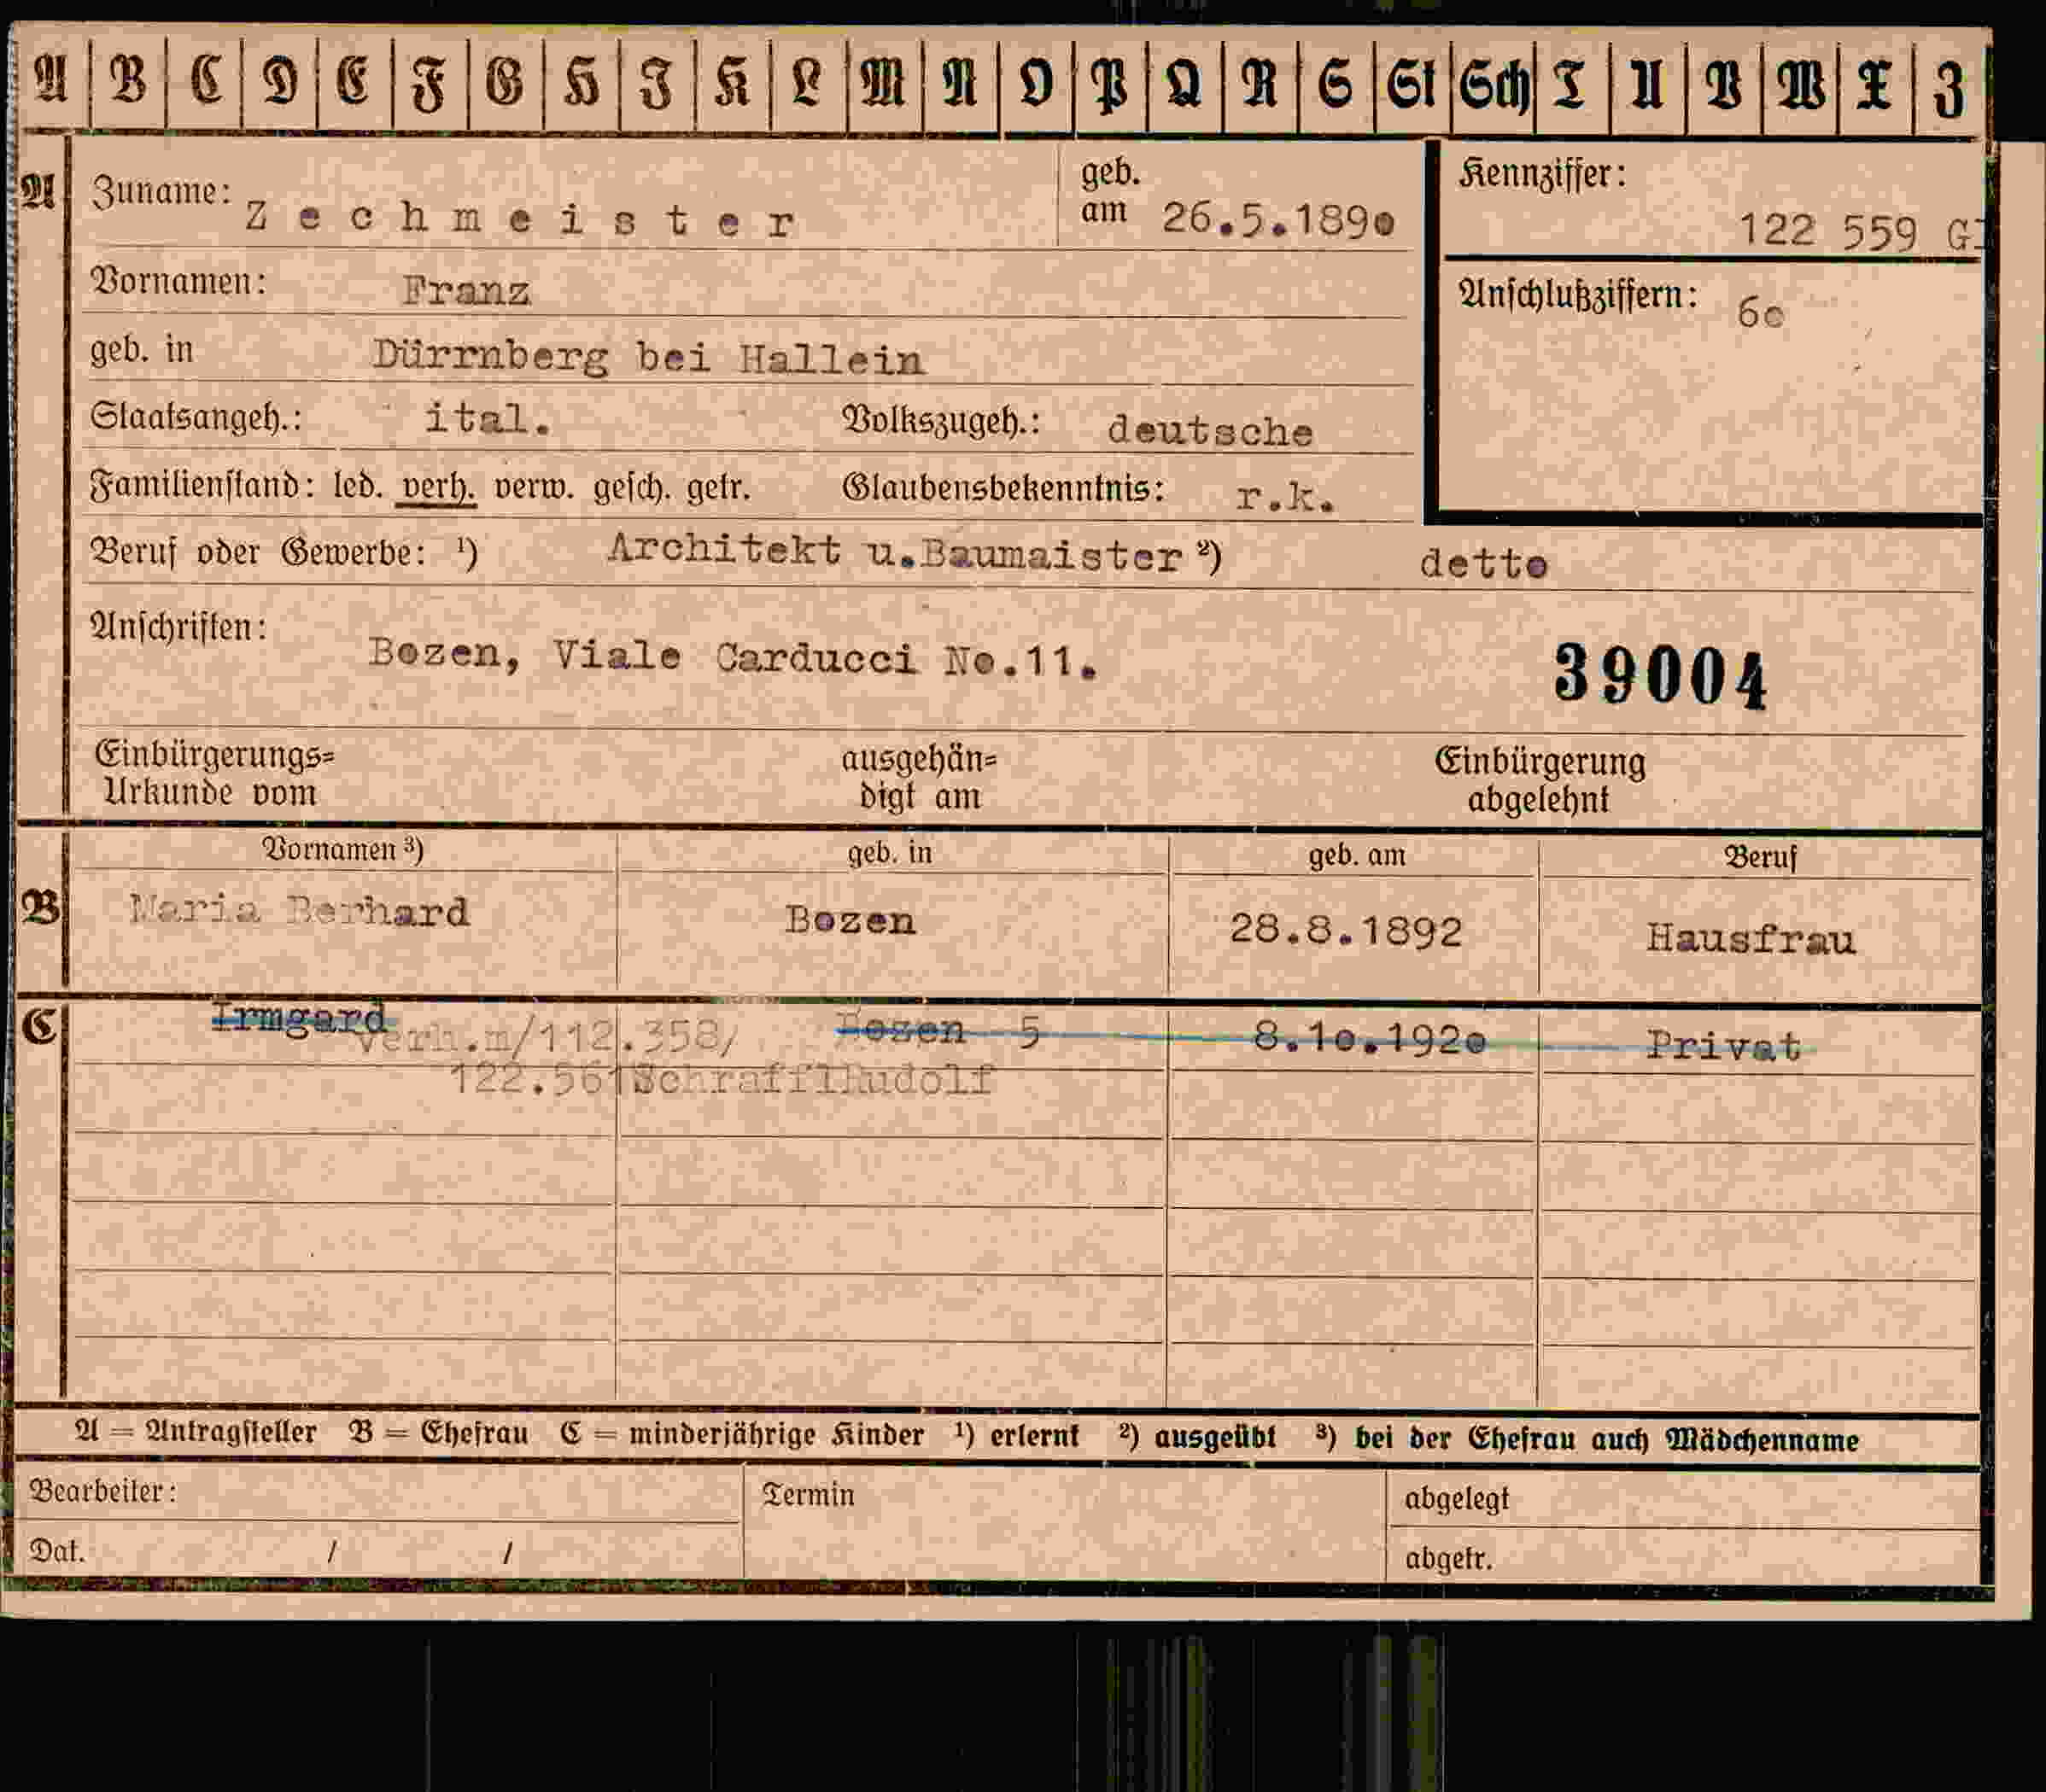 A B C D E F G H I K L M N O P Q R S St Sch T U V W X Z
A Zuname: Zechmeister geb. am 26.5.1890 Kennziffer: 122 559
Vornamen: Franz Anschlußziffern: 60
geb. in Dürrnberg bei Hallein
Staatsangeh.: ital. Volkszugeh.: deutsche
Familienstand: led. verh. verw. gesch. getr. Glaubensbekenntnis: r.k.
Beruf oder Gewerbe: ¹) Architekt u.Baumaister ²) detto
Anschriften: Bozen, Viale Carducci No.11. 39004
Einbürgerungs= ausgehän= Einbürgerung
Urkunde vom digt am abgelehnt
Vornamen ³) geb. in geb. am Beruf
B Maria Berhard Bozen 28.8.1892 Hausfrau
C Irmgard verh.m/112.358/ Bozen 5 8.10.1920 Privat
122.561 Schraffl Rudolf
A = Antragsteller B = Ehefrau C = minderjährige Kinder ¹) erlernt ²) ausgeübt ³) bei der Ehefrau auch Mädchenname
Bearbeiter: Termin abgelegt
Dat. / / abgetr.